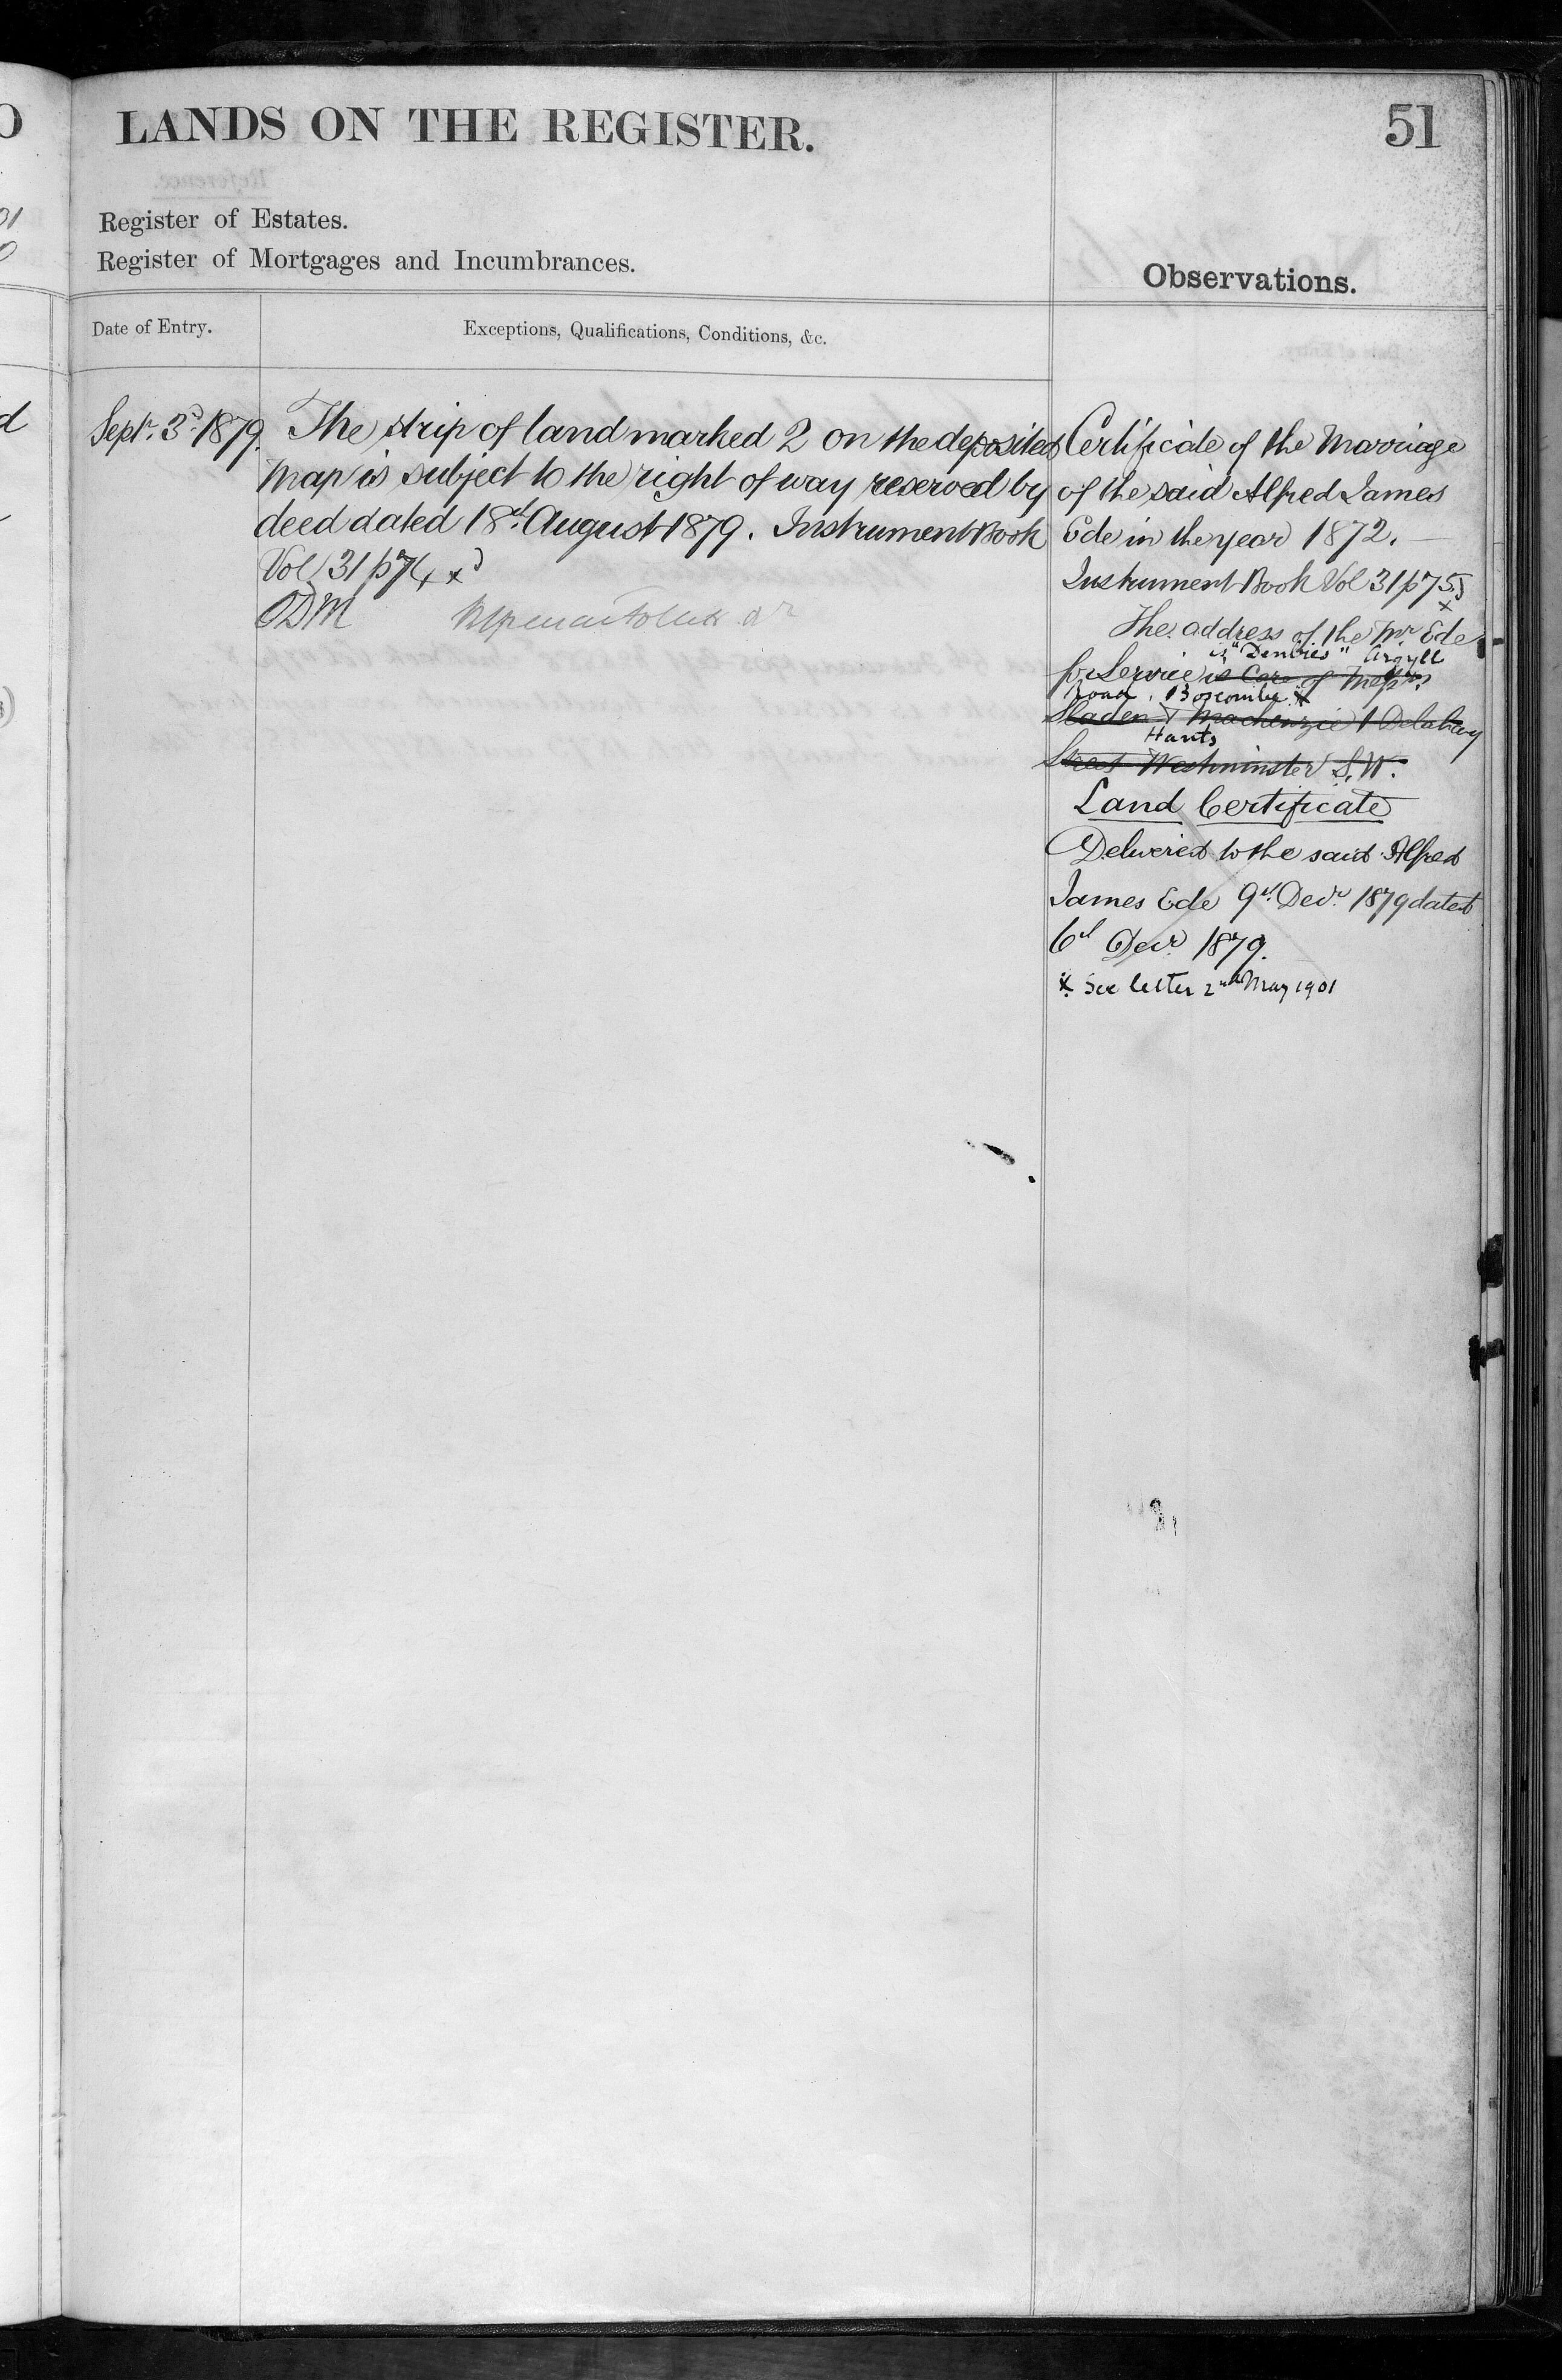 LANDS ON THE REGISTER.
51
Register of Estates.
Register of Mortgages and Incumbrances.
Observations.
Date of Entry.
Exceptions, Qualifications, Conditions, &c.
Septr. 3d 1879.
The strip of land marked 2 on the deposited
Map is subject to the right of way reserved by
deed dated 18th August 1879. Instrument Book
Vol 31 p 74 x
ODM
Certificate of the Marriage
of the said Alfred James
Ede in the year 1872.
Instrument Book Vol 31 p 755
x
The address of the Mr Ede
is "Denbies" Argyll
for Service is Care of Messrs
Road, Boscombe x
Sladen & Mackenzie 1 Delahay
Hants
Street Westminster S.W.
Land Certificate
Delivered to the said Alfred
James Ede 9th Decr 1879 dated
6th Decr 1879.
x See letter 2nd May 1901